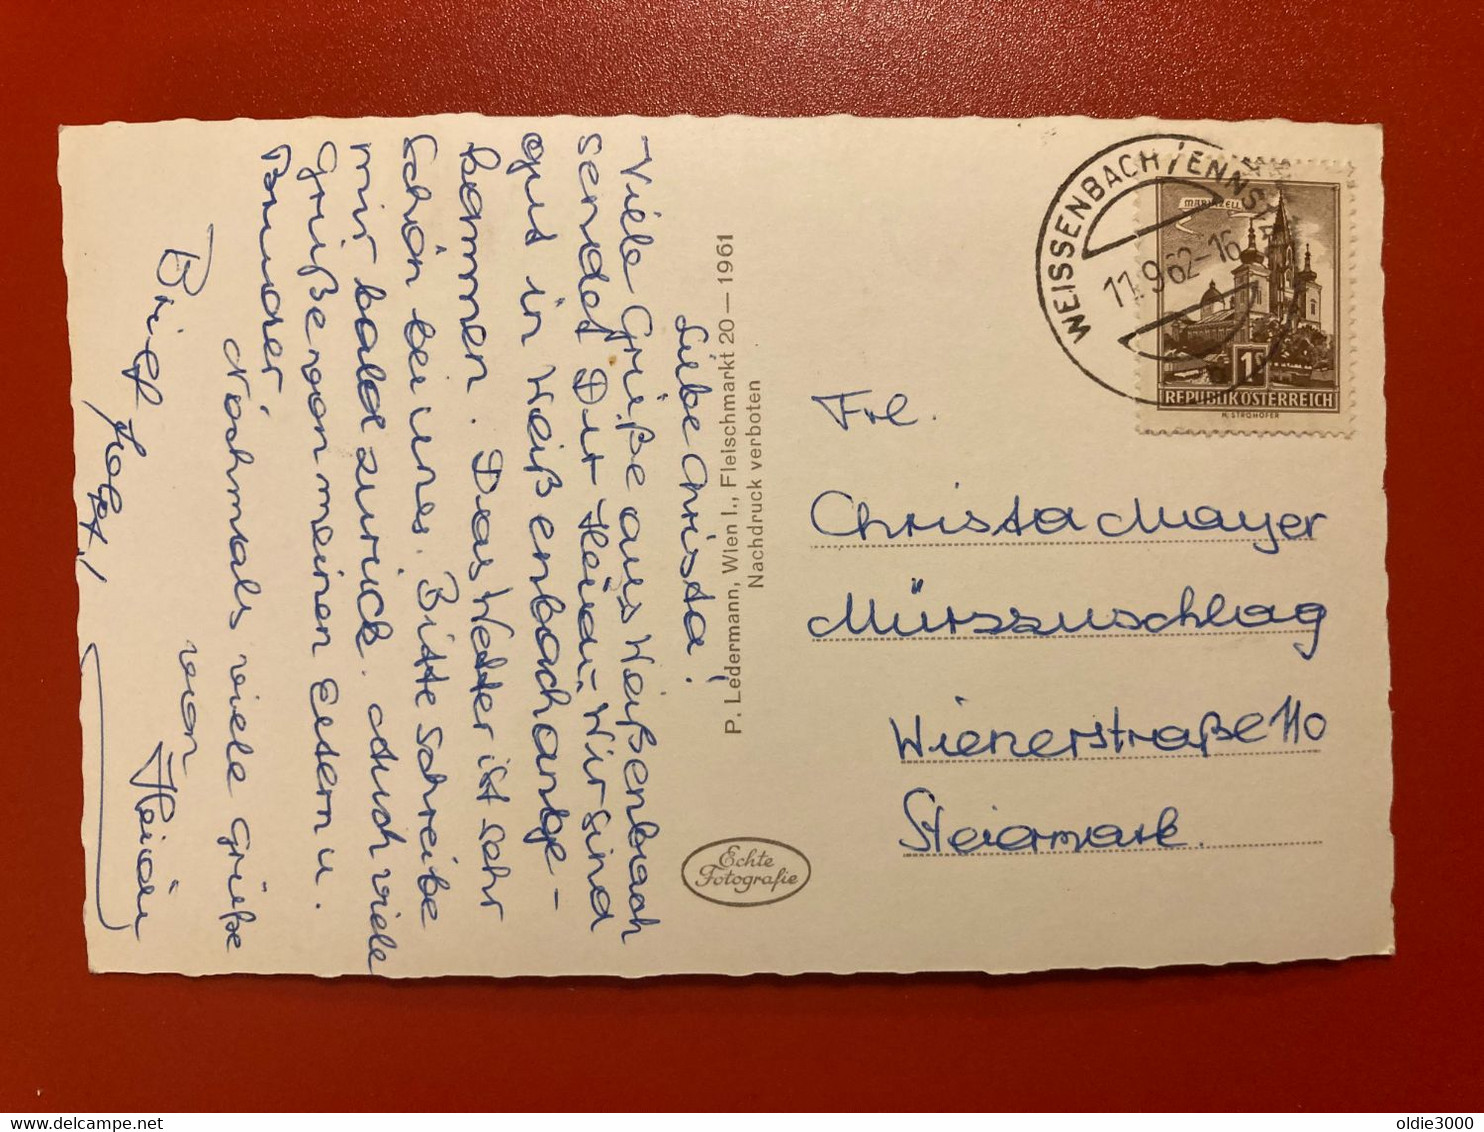 Liebe Christa!
Viele Grüße aus Weißenbach
sendet Dir Heidi. Wir sind
gut in Weißenbach ange-
kommen. Das Wetter ist sehr
schön bei uns. Bitte schreibe
mir bald zurück. Auch viele
Grüße von meinen Eltern u.
Bruder
Nochmals viele Grüße
von
Heidi
Brief folgt!
P. Ledermann, Wien I., Fleischmarkt 20 — 1961
Nachdruck verboten
Echte
Fotografie
WEISSENBACH/ENNS
11.9.62-16
MARIAZELL
1S
REPUBLIK ÖSTERREICH
H. STROHOFER
Frl.
Christa Mayer
Mürzzuschlag
Wienerstraße 110
Steiermark.
oldie3000